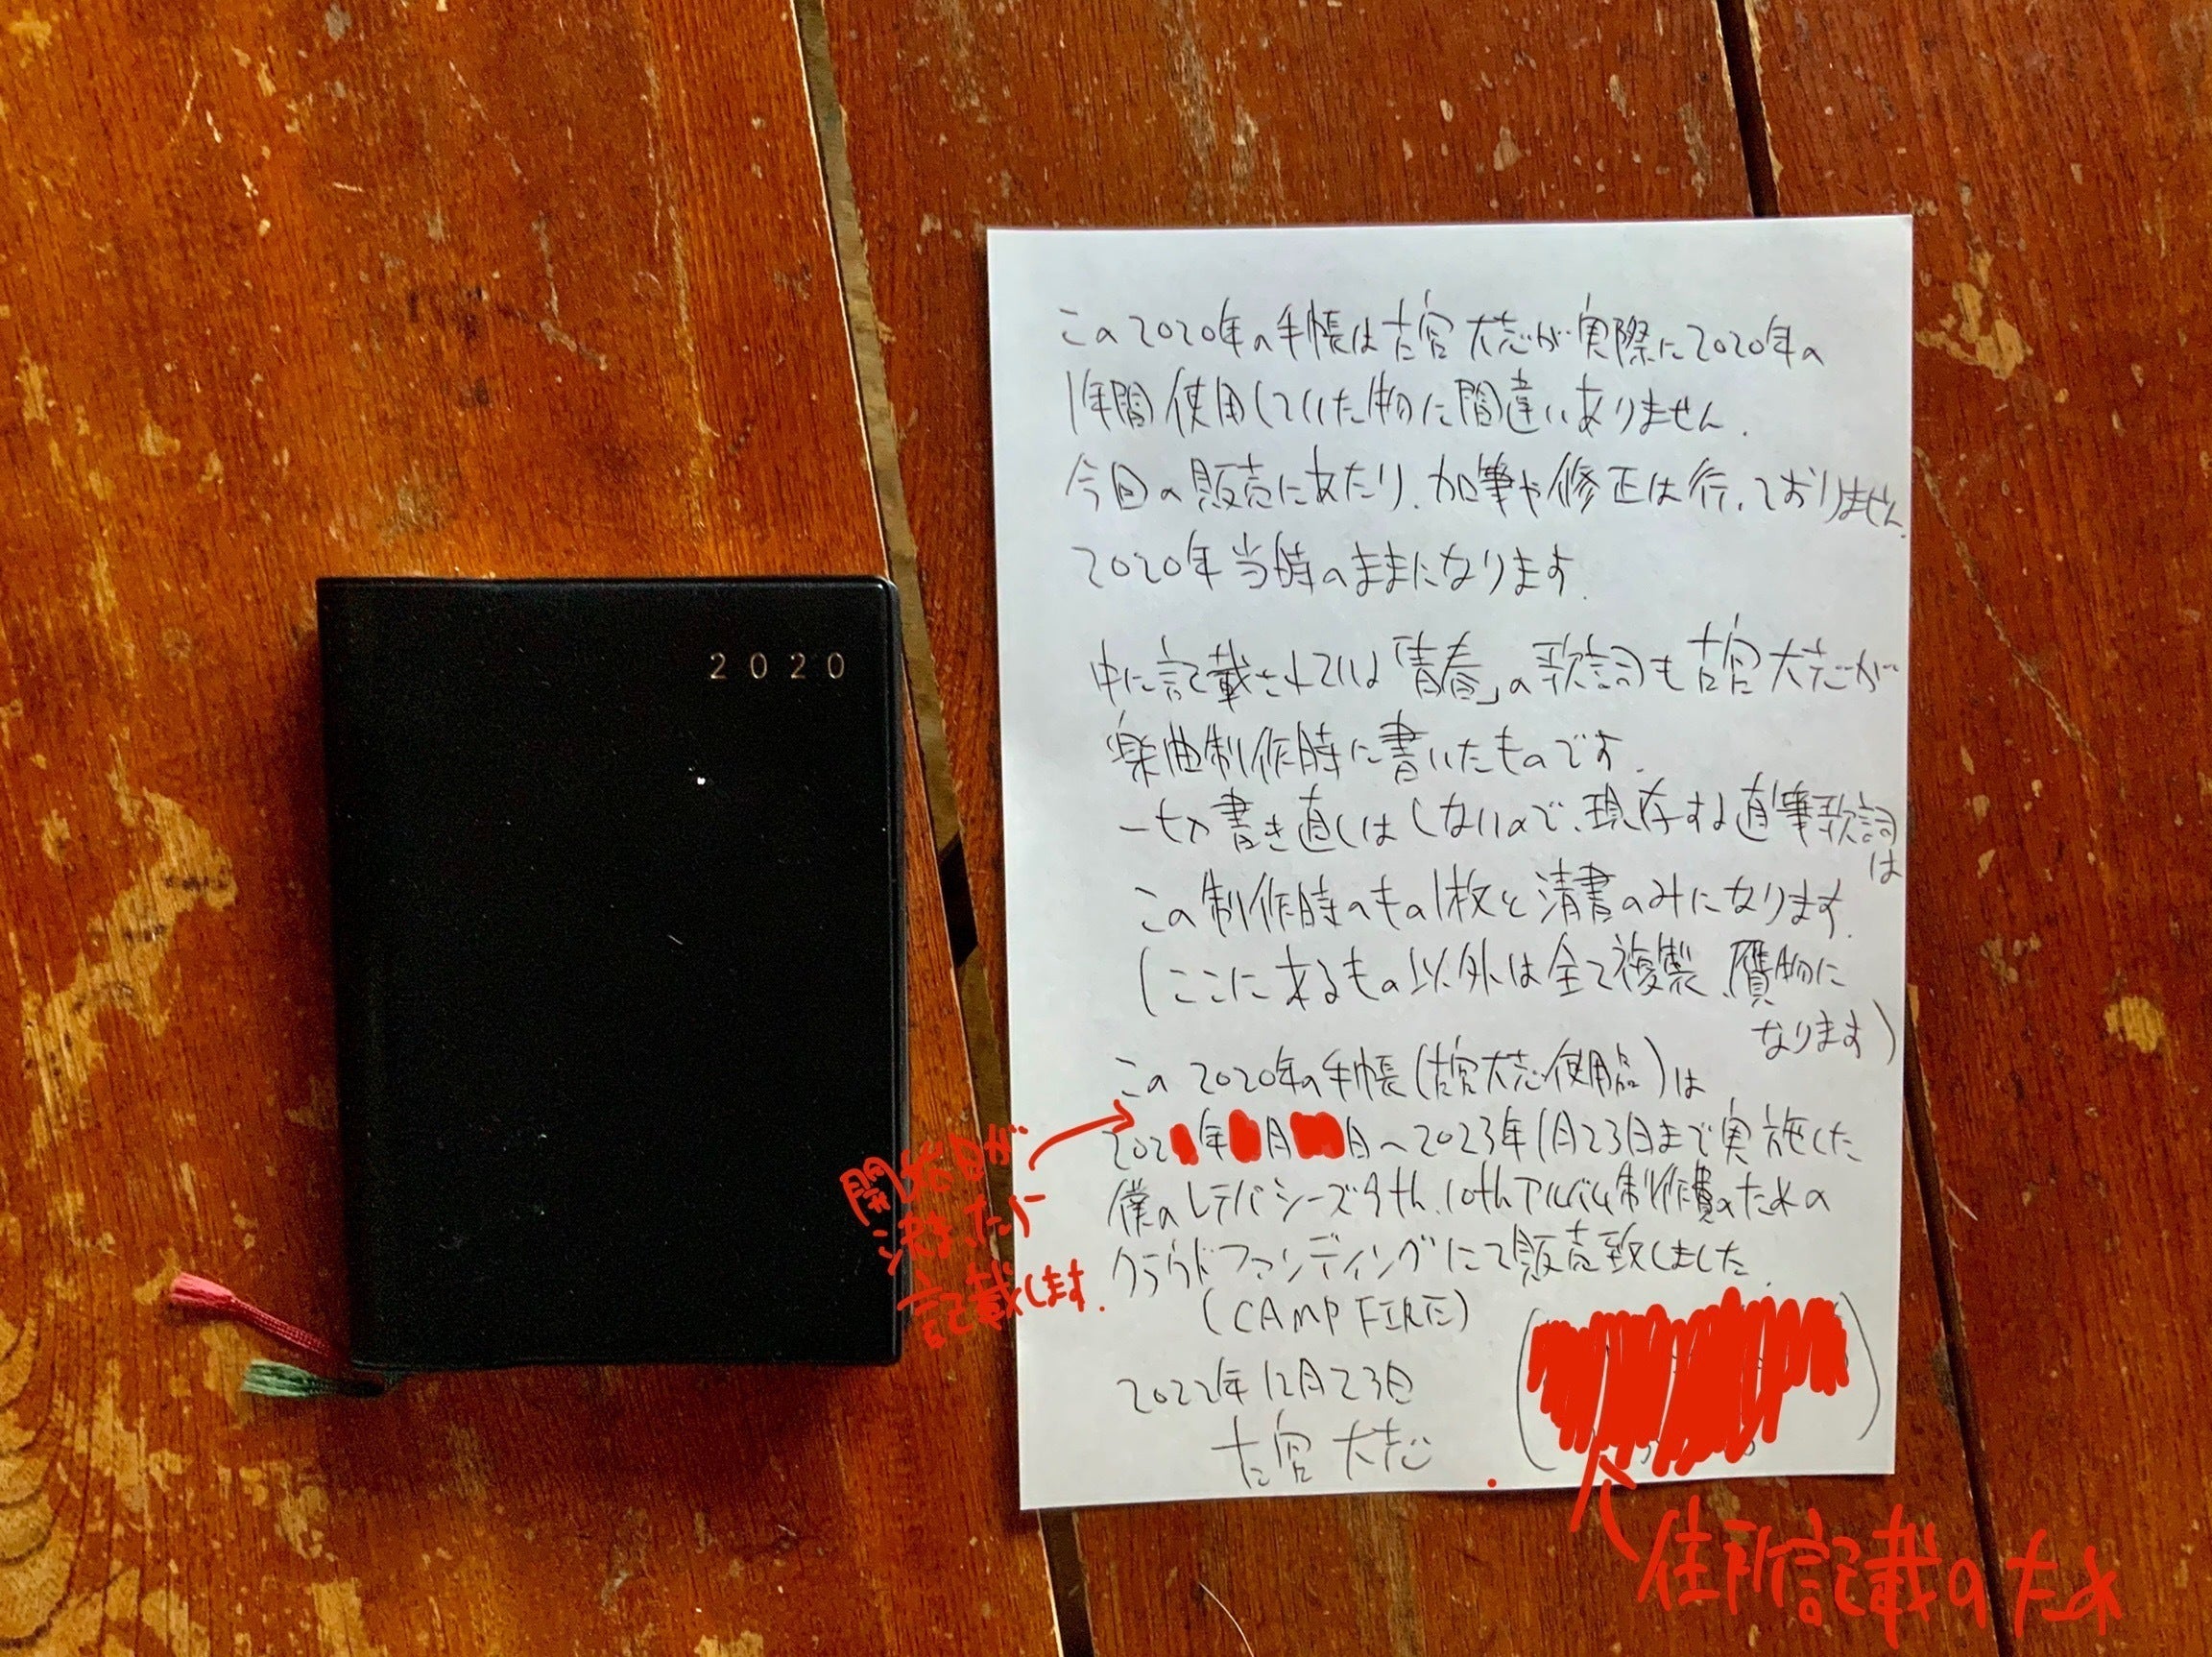 2020
この2020年の手帳は古宮大志が実際に2020年の
1年間使用していた物に間違いありません.
今回の販売にあたり、加筆や修正は行っておりません.
2020年当時のままになります.
中に記載されている「青春」の歌詞も古宮大志が
楽曲制作時に書いたものです.
一切書き直しはしないので、現存する直筆歌詞
は
この制作時のもの1枚と清書のみになります.
(ここに来るもの以外は全て複製、贋物に
なります)
この2020年の手帳(古宮大志使用品)は
202 年 月 日〜2023年1月23日まで実施した
僕のレテパシーズ9th、10thアルバム制作費のための
クラウドファンディングにて販売致しました.
(CAMPFIRE)
2022年12月23日
古宮大志
開始日が
決まったら
記載します.
住所記載のため